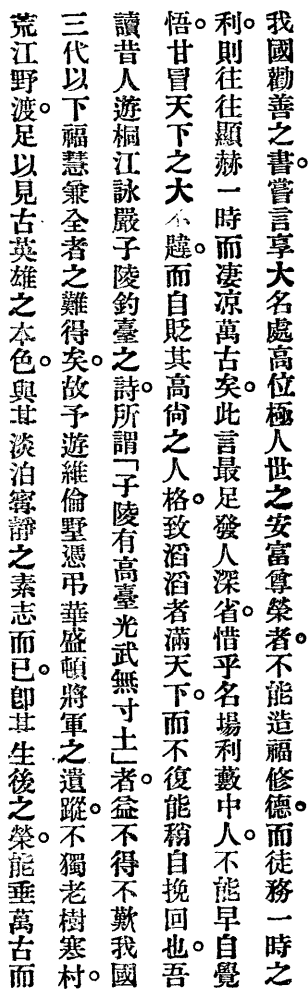 我國勸善之書。嘗言享大名處高位極人世之安富尊榮者。不能造福修德。而徒務一時之
利。則往往顯赫一時而凄凉萬古矣。此言最足發人深省。惜乎名場利藪中人。不能早自覺
悟。甘冒天下之大不韙。而自貶其高尙之人格。致滔滔者滿天下。而不復能稍自挽回也。吾
讀昔人遊桐江詠嚴子陵釣臺之詩。所謂「子陵有高臺光武無寸土」者。益不得不歎我國
三代以下福慧兼全者之難得矣。故予遊維倫墅憑弔華盛頓將軍之遺蹤。不獨老樹寒村。
荒江野渡。足以見古英雄之本色。與其淡泊寗靜之素志而已。卽其生後之榮。能垂萬古而